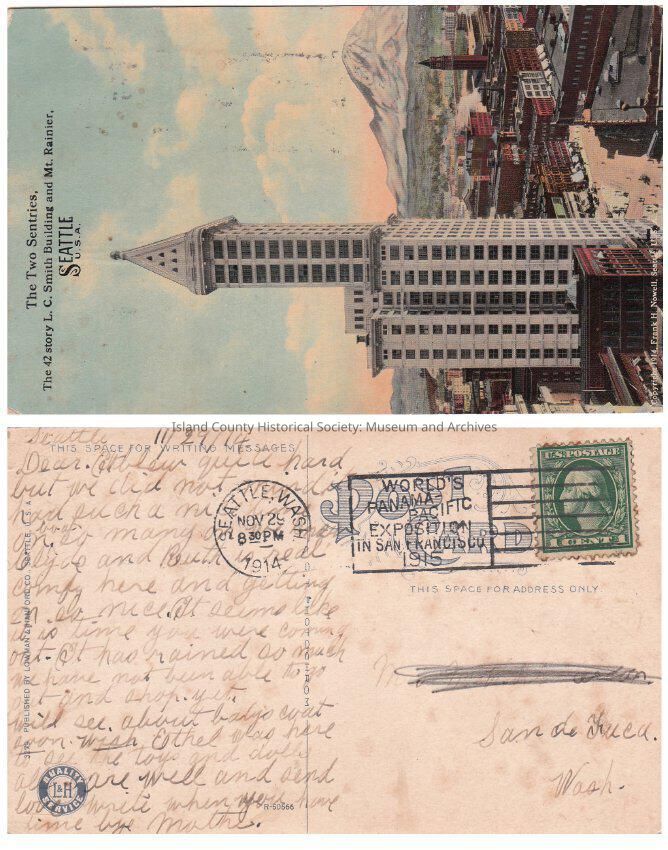 The Two Sentries,
The 42 story L. C. Smith Building and Mt. Rainier,
SEATTLE
U.S.A.
Copyright 1914, Frank H. Nowell, Seattle
Island County Historical Society: Museum and Archives
Seattle 11/29/14
THIS SPACE FOR WRITING MESSAGES
Dear. It blew quite hard
but we did not
had such a nice
so many
and Ruth is real
comfy here and getting
on so nice. It seems like
time you were coming
out. It has rained so much
we have not been able to go
out and shop. yet.
will see about babys coat
soon. wish Ethel was here
to see the toys and dolls
all are well and send
love write when you have
time bye Mother.
PUBLISHED BY LOWMAN & HANFORD CO. SEATTLE, U.S.A.
QUALITY
L&H
SERVICE
R-50566
SEATTLE, WASH.
NOV 29
8 30 PM
1914
WORLD'S
PANAMA
PACIFIC
EXPOSITION
IN SAN FRANCISCO
1915
Post
CARD
U.S. POSTAGE
1 CENT 1
THIS SPACE FOR ADDRESS ONLY.
San de Fuca.
Wash.